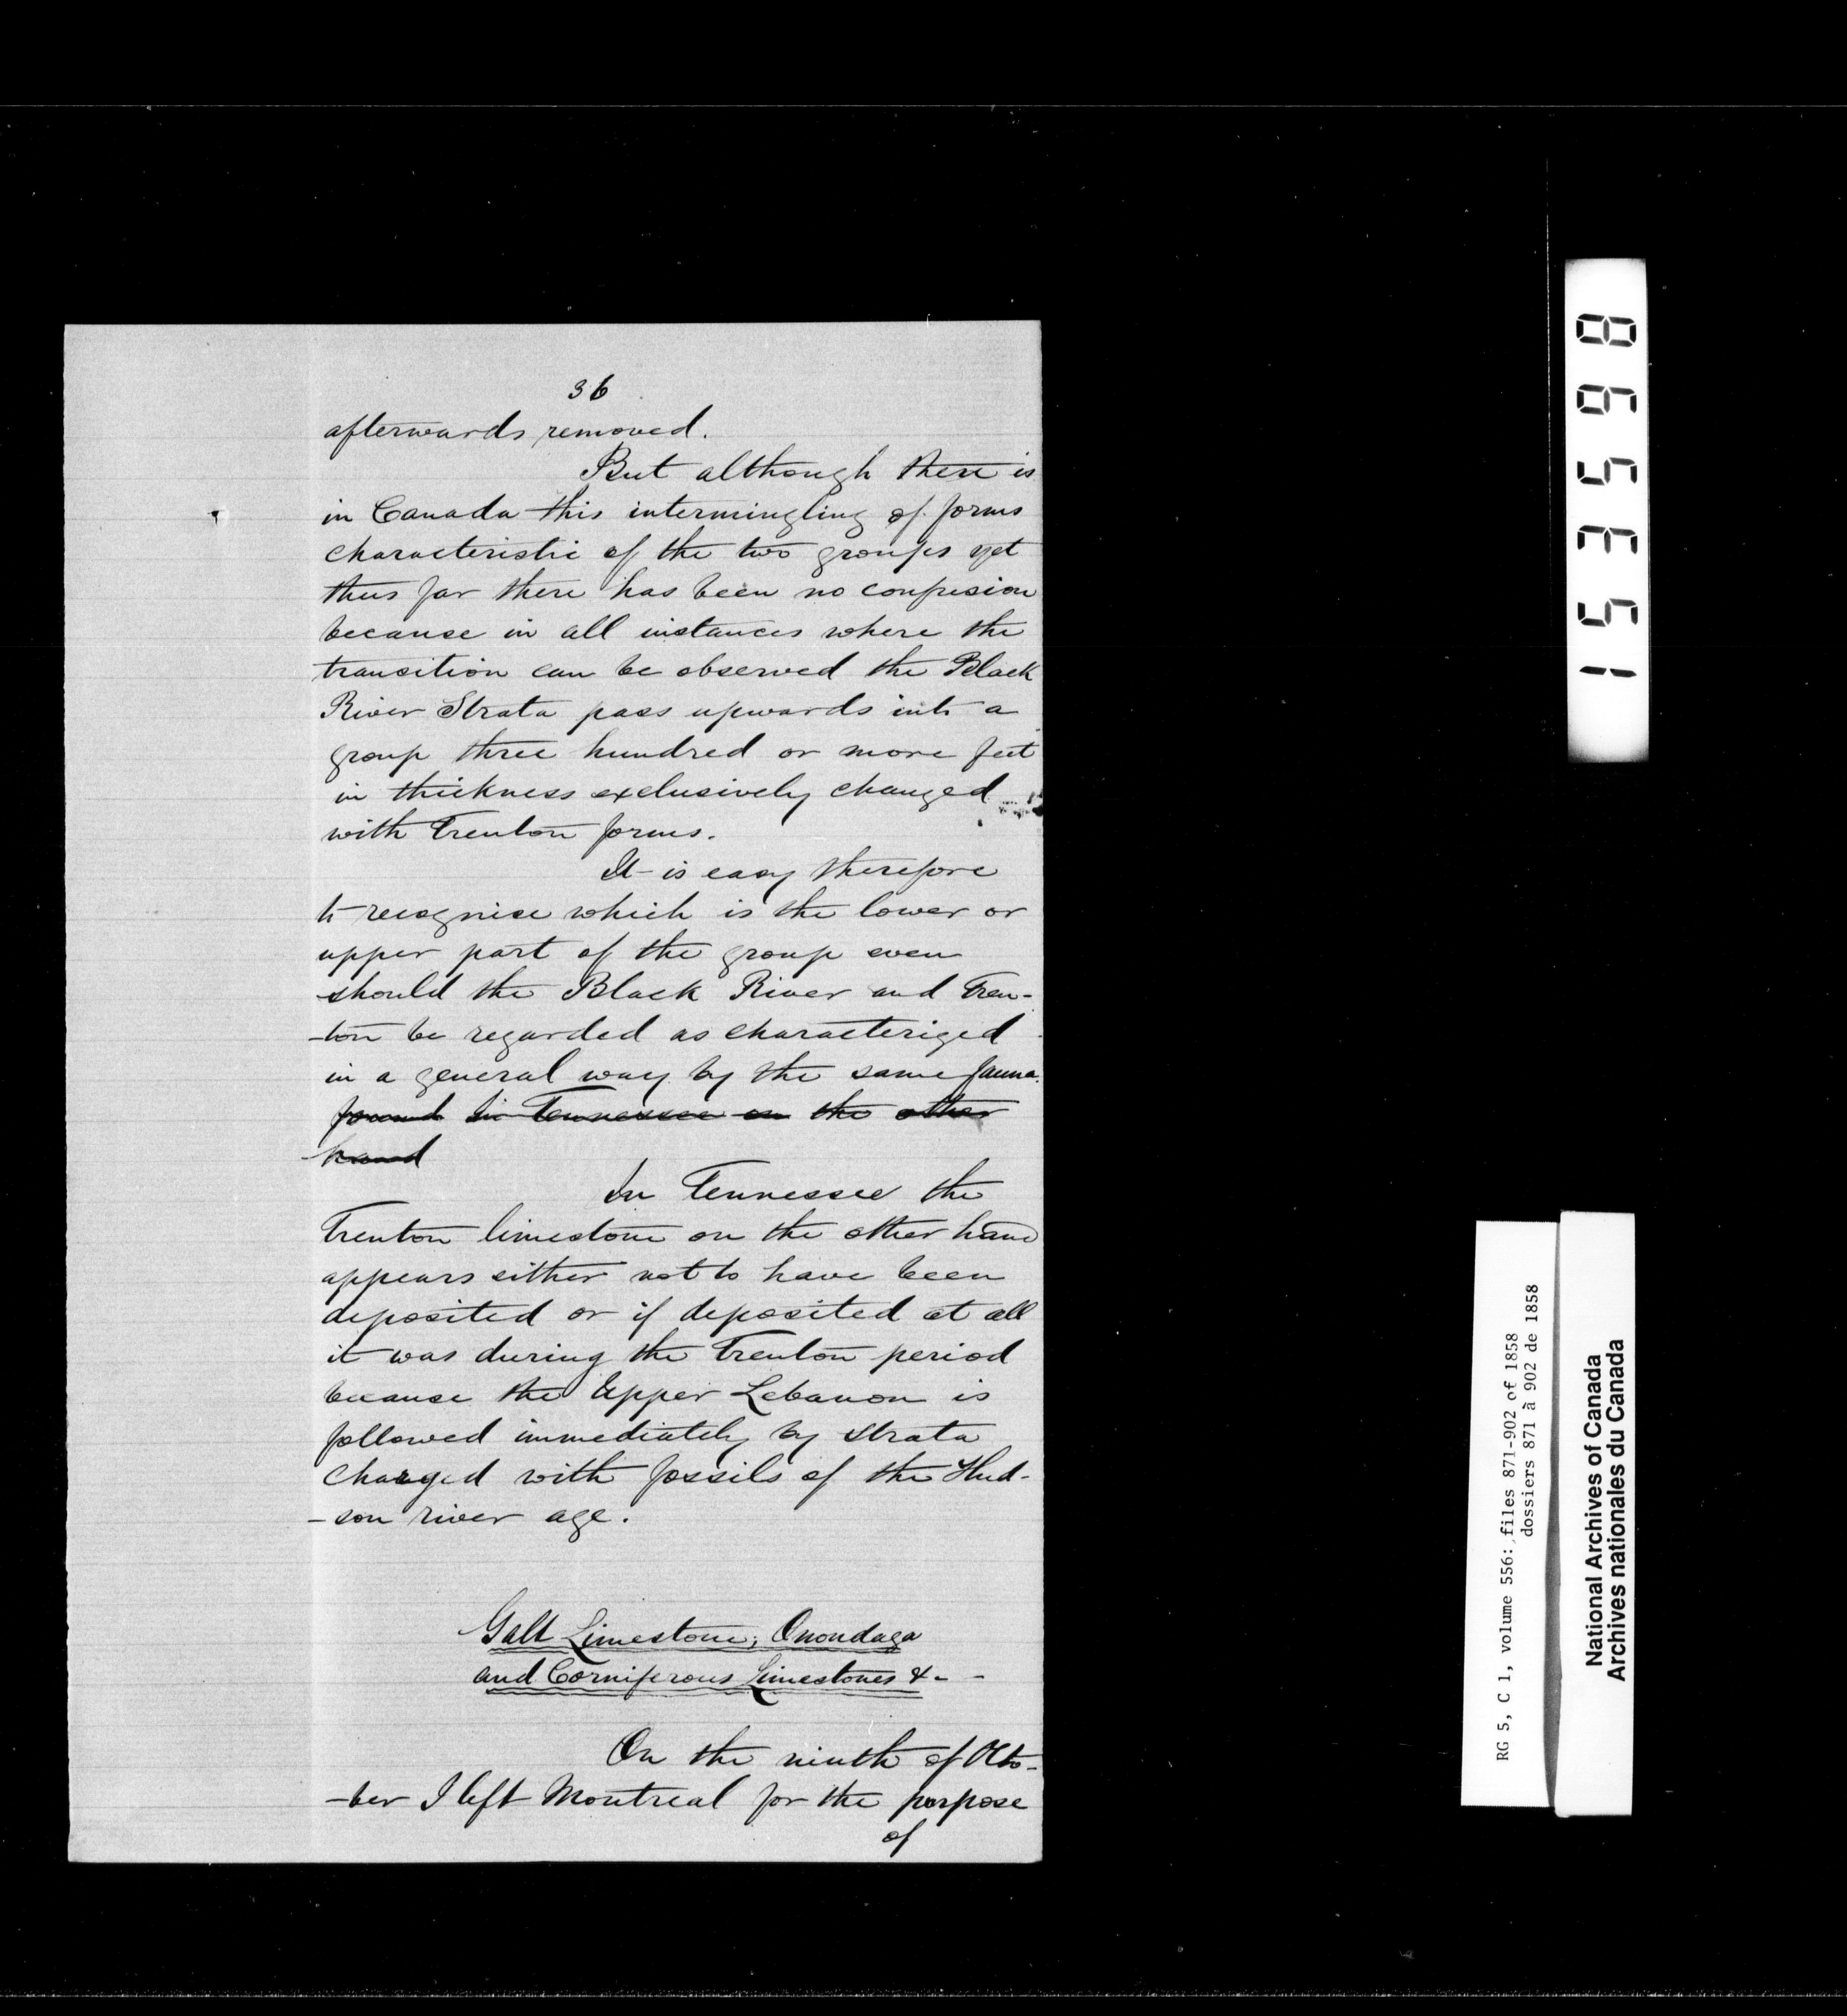 36
afterwards removed.
But although there is
in Canada this intermingling of forms
characteristic of the two groups yet
thus far there has been no confusion
because in all instances where the
transition can be observed the Black
River Strata pass upwards into a
group three hundred or more feet
in thickness exclusively changed
with Trenton forms.
It is easy therefore
to recognise which is the lower or
upper part of the group even
should the Black River and Tren-
-ton be regarded as characterized
in a general way by the same fauna.
found in Tennessee on the other
hand
In Tennessee the
Trenton limestone on the other hand
appears either not to have been
deposited or if deposited at all
it was during the Trenton period
because the Upper Lebanon is
followed immediately by strata
charged with fossils of the Hud-
-son river age.
Galt Limestone, Onondaga
and Corniferous Limestones &-
On the ninth of Octo-
-ber I left Montreal for the purpose
of
153598
RG 5, C 1, volume 556: files 871-902 of 1858
dossiers 871 à 902 de 1858
National Archives of Canada
Archives nationales du Canada